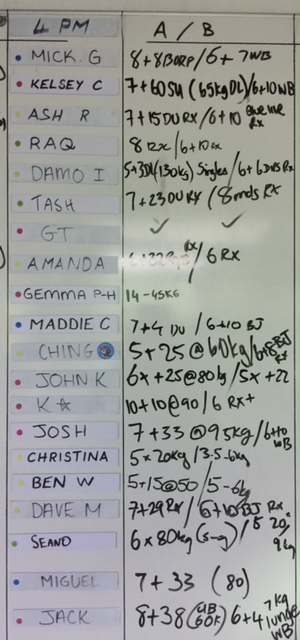 4 PM A / B
MICK. G 8+8 BURP / 6+7 WB
KELSEY C 7+60SU (65kg DL) / 6+10 WB
ASH R 7+15 DU RX / 6+10 RX
RAQ 8 RX / 6+10 RX
DAMO I 5+3DL (130kg) Singles / 6+6 RX
TASH 7+23 DU RX / 8 rnds RX
GT ✓ ✓
AMANDA RX / 6 RX
GEMMA P-H 14-45KG
MADDIE C 7+4 DU / 6+10 BJ
CHING 5+25 @ 60kg /
JOHN K 6x+25@80kg / 5x+22
K☆ 10+10@90 / 6 RX+
JOSH 7+33 @95kg / 6+10 WB
CHRISTINA 5x20kg / 3.5-6kg
BEN W 5+15@50 / 5-6kg
DAVE M 7+29 RX / 6+10 BJ RX
SEANO 6x80kg (s-g) / 5 20, 9kg
MIGUEL 7+33 (80)
JACK 8+38 6+4 7kg lunge WB